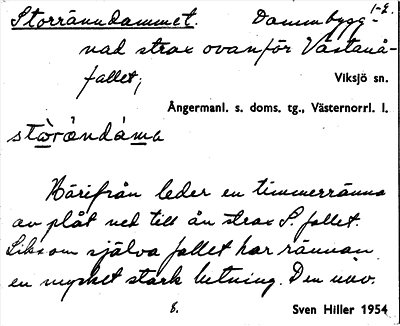 Storränndammet. Dammbygg- 1-2.
nad strax ovanför Västanå-
fallet;
Viksjö sn.
Ångermanl. s. doms. tg., Västernorrl. l.
Härifrån leder en timmerränna
av plåt ned till ån strax S. fallet.
Liksom själva fallet har rännan
en mycket stark lutning. Den nuv.
Sven Hiller 1954